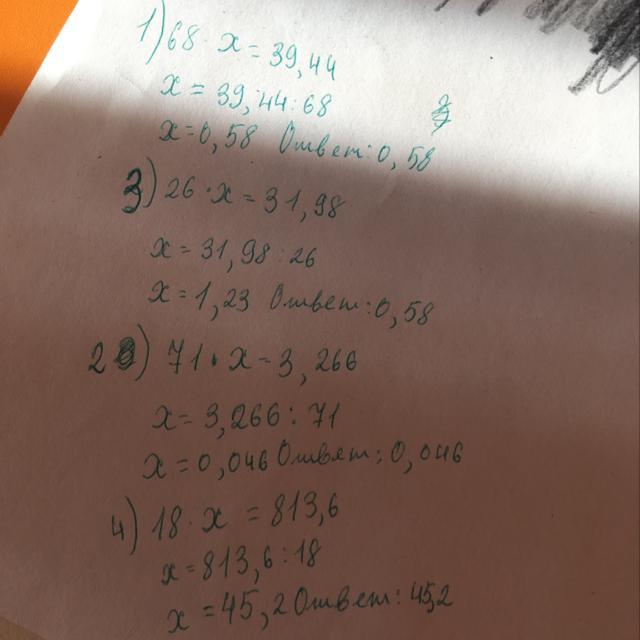 1) 68 · x = 39,44
x = 39,44 : 68
x = 0,58 Ответ: 0,58
3) 26 · x = 31,98
x = 31,98 : 26
x = 1,23 Ответ: 0,58
2) 71 · x = 3,266
x = 3,266 : 71
x = 0,046 Ответ: 0,046
4) 18 · x = 813,6
x = 813,6 : 18
x = 45,2 Ответ: 45,2